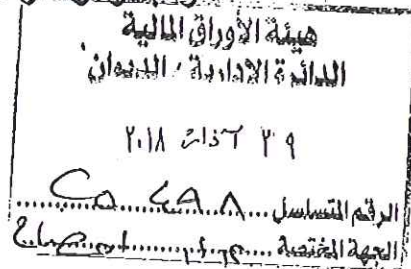 هيئة الأوراق المالية
الدائرة الإدارية / الديوان
٢٩ آذار ٢٠١٨
الرقم المتسلسل
الجهة المختصة